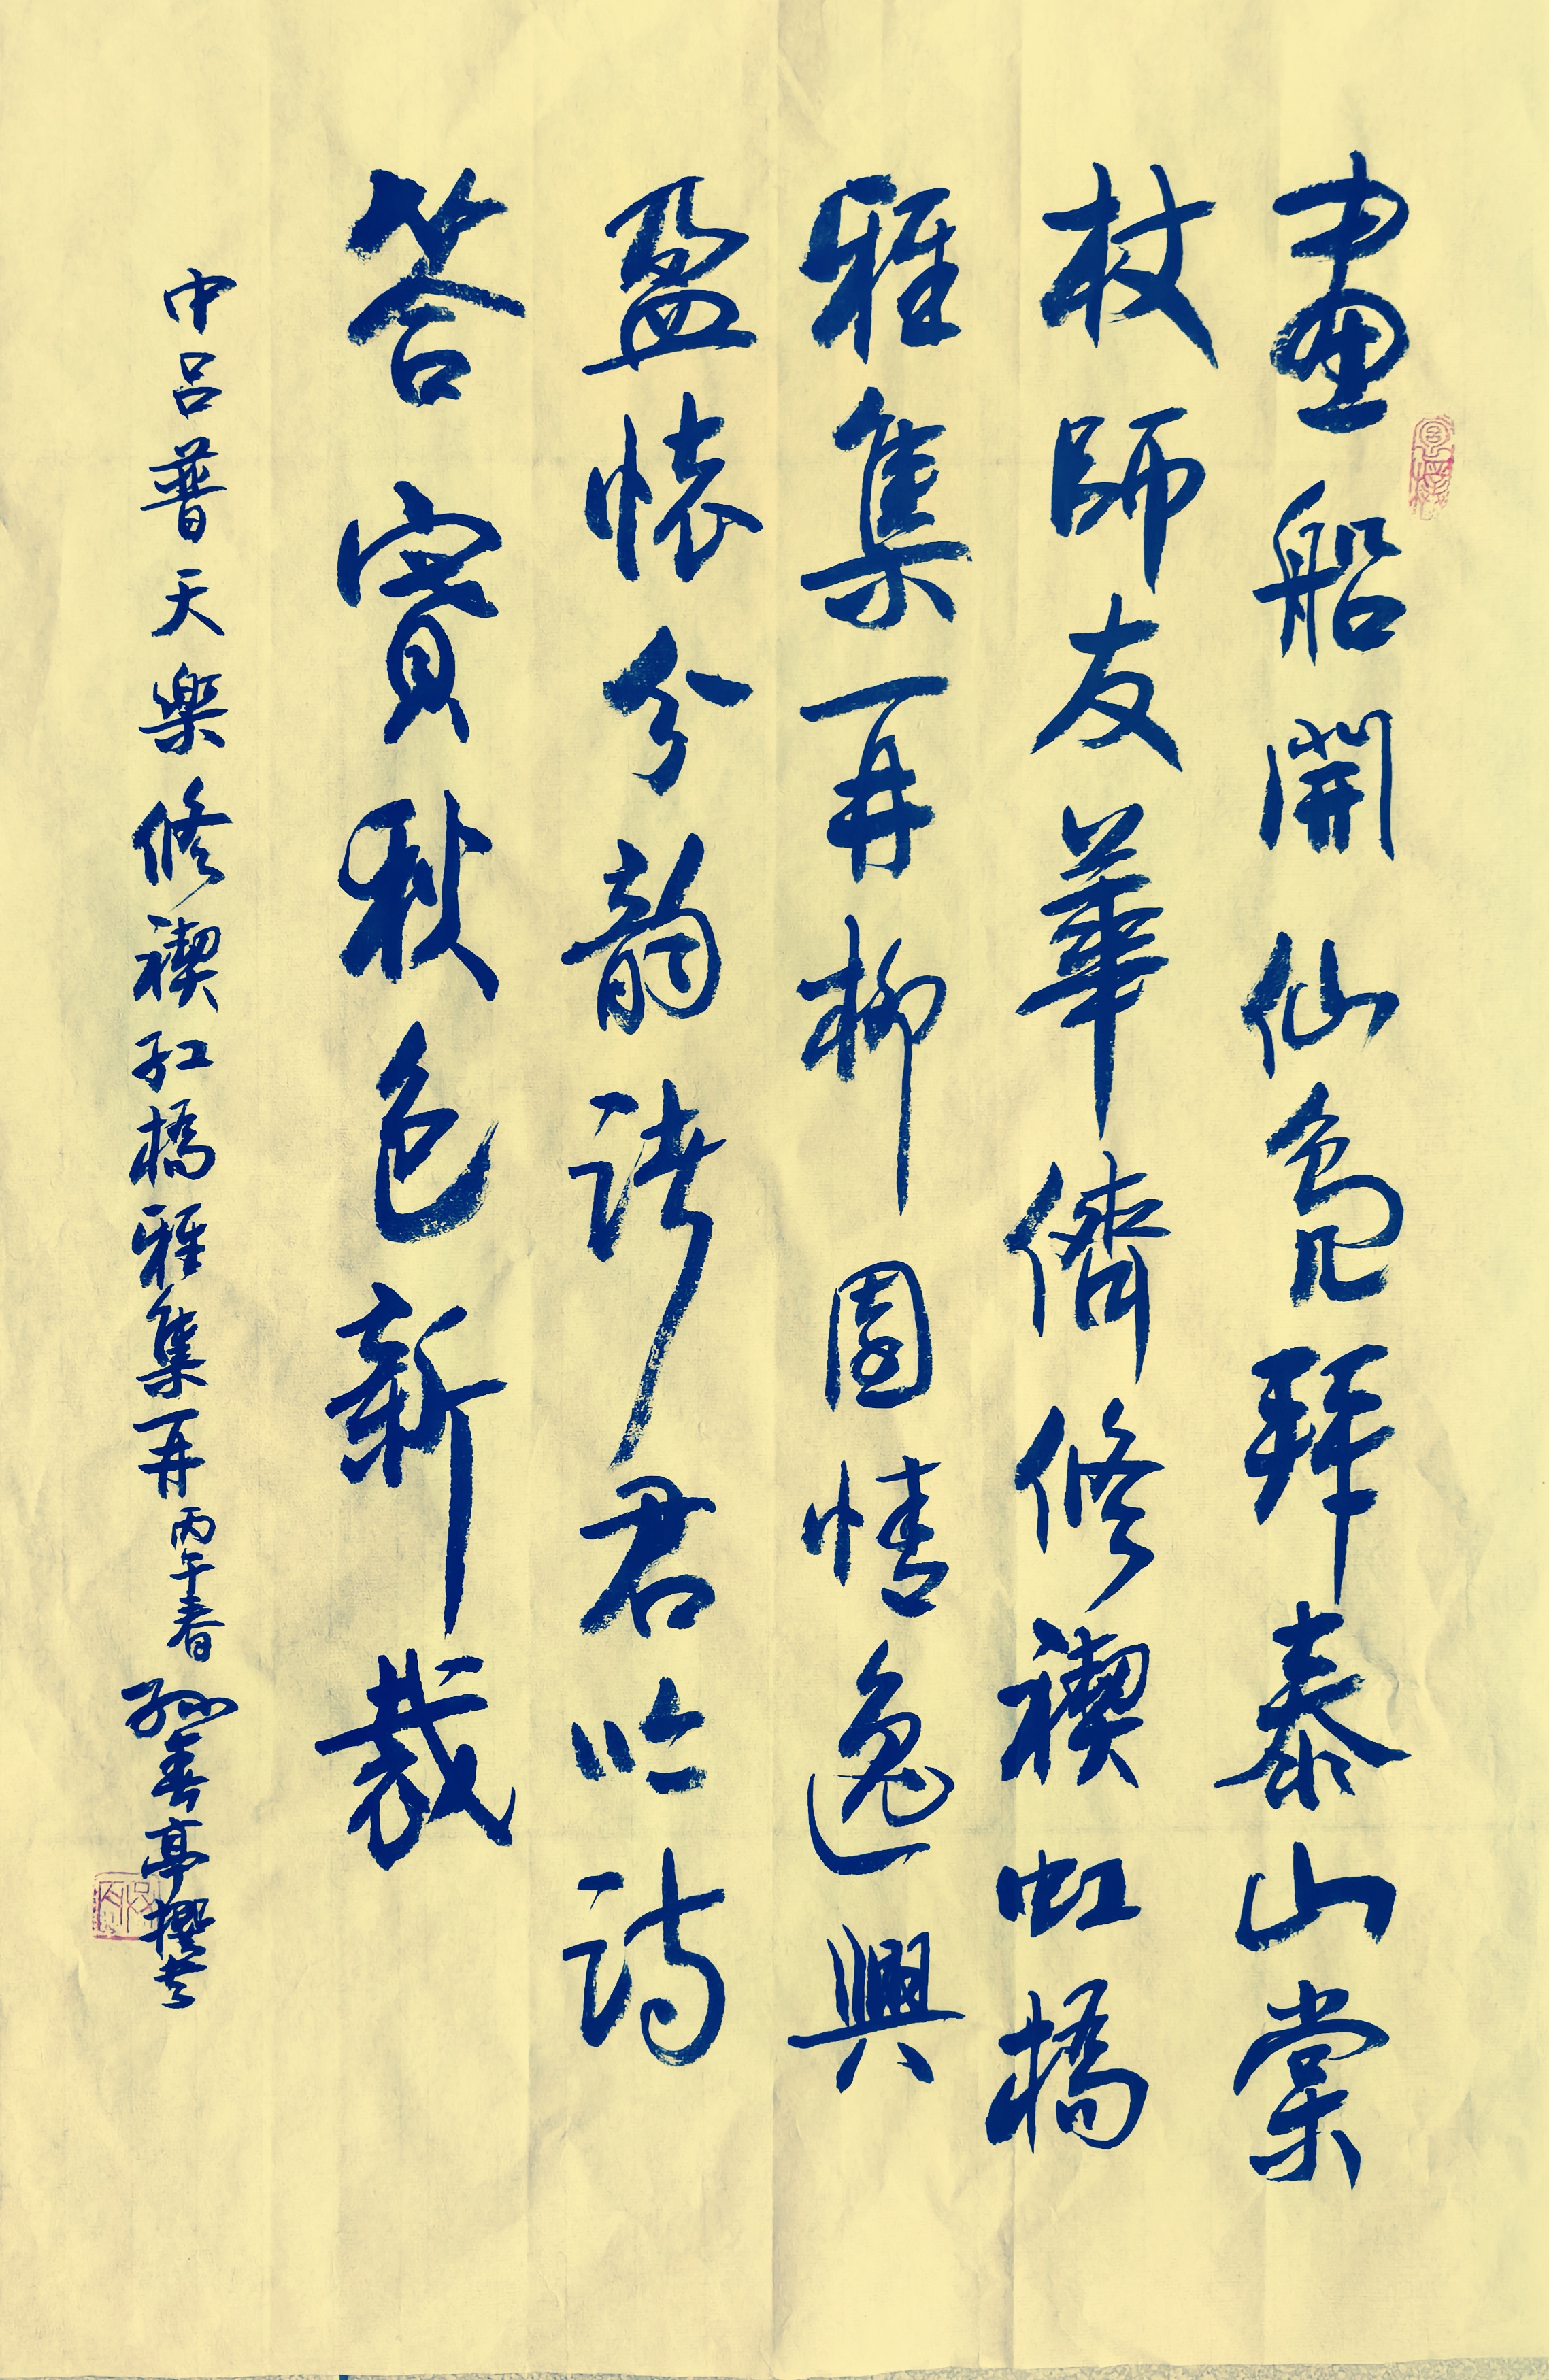 畫船開仙鳧拜泰山棠
杖師友華儕修禊虹橋
雅集再柳園情逸興
盈懷分韻諸君吟詩
答賓秋色新裁
中呂普天樂修禊紅橋雅集再丙午春孫善亭撰書